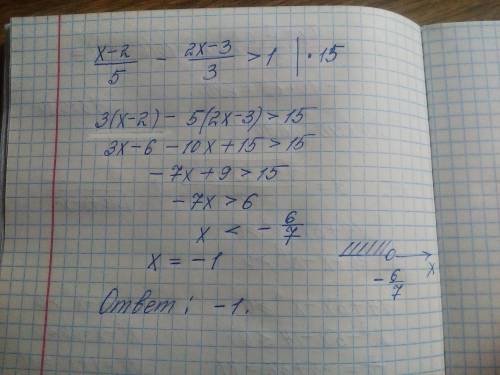 (x-2)/5 - (2x-3)/3 > 1 | · 15
3(x-2) - 5(2x-3) > 15
3x-6 -10x+15 > 15
-7x+9 > 15
-7x > 6
x < - 6/7
x = -1
- 6/7 x
Ответ: -1.